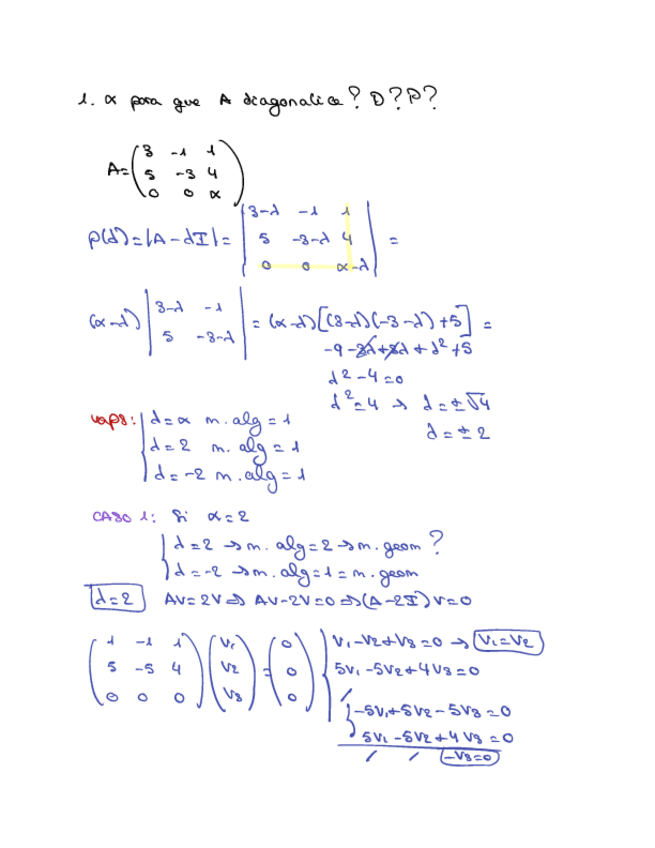 1. α para que A diagonalice? D? P?
A = ( 3 -1 1
5 -3 4
0 0 α )
p(λ) = |A - λI| = | 3-λ -1 1
5 -3-λ 4
0 0 α-λ | =
(α-λ) | 3-λ -1
5 -3-λ | = (α-λ) [(3-λ)(-3-λ) + 5] =
-9 - 3λ + 3λ + λ² + 5
λ² - 4 = 0
λ² = 4 → λ = ± √4
λ = ± 2
vaps: λ = α m. alg = 1
λ = 2 m. alg = 1
λ = -2 m. alg = 1
CASO 1: Si α = 2
λ = 2 → m. alg = 2 → m. geom ?
λ = -2 → m. alg = 1 = m. geom
λ = 2 AV = 2V ⇒ AV - 2V = 0 ⇒ (A - 2I) V = 0
( 1 -1 1
5 -5 4
0 0 0 ) ( V1
V2
V3 ) = ( 0
0
0 )
V1 - V2 + V3 = 0 → V1 = V2
5V1 - 5V2 + 4V3 = 0
-5V1 + 5V2 - 5V3 = 0
5V1 - 5V2 + 4V3 = 0
/ / -V3 = 0